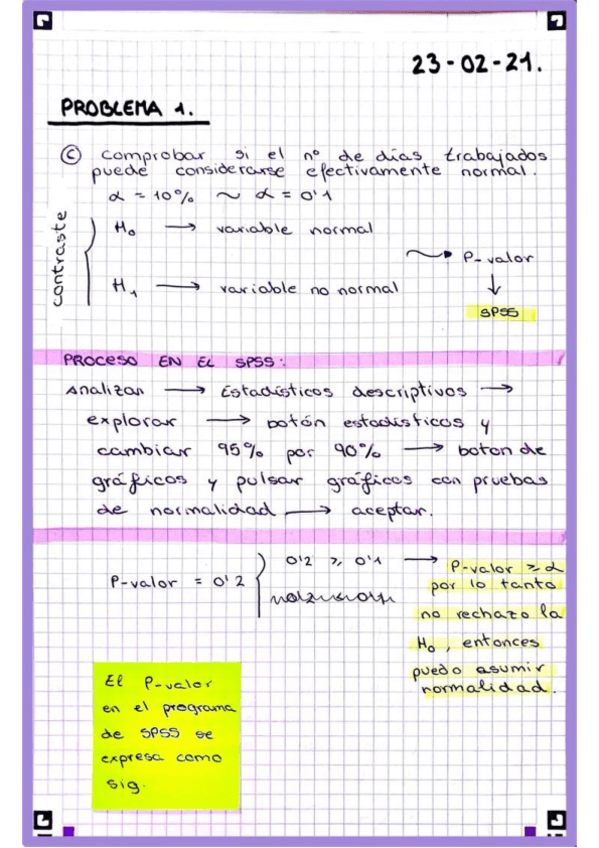 23-02-21.
PROBLEMA 1.
© comprobar si el nº de días trabajados
puede considerarse efectivamente normal.
α = 10% ~ α = 0'1
contraste
H₀ → variable normal
P-valor
↓
SPSS
H₁ → variable no normal
PROCESO EN EL SPSS:
Analizar → Estadísticos descriptivos →
explorar → botón estadísticos y
cambiar 95% por 90% → boton de
gráficos y pulsar gráficos con pruebas
de normalidad → aceptar.
P-valor = 0'2
0'2 ≥ 0'1 → P-valor ≥ α
por lo tanto
no rechazo la
H₀, entonces
puedo asumir
normalidad.
El P-valor
en el programa
de SPSS se
expresa como
sig.